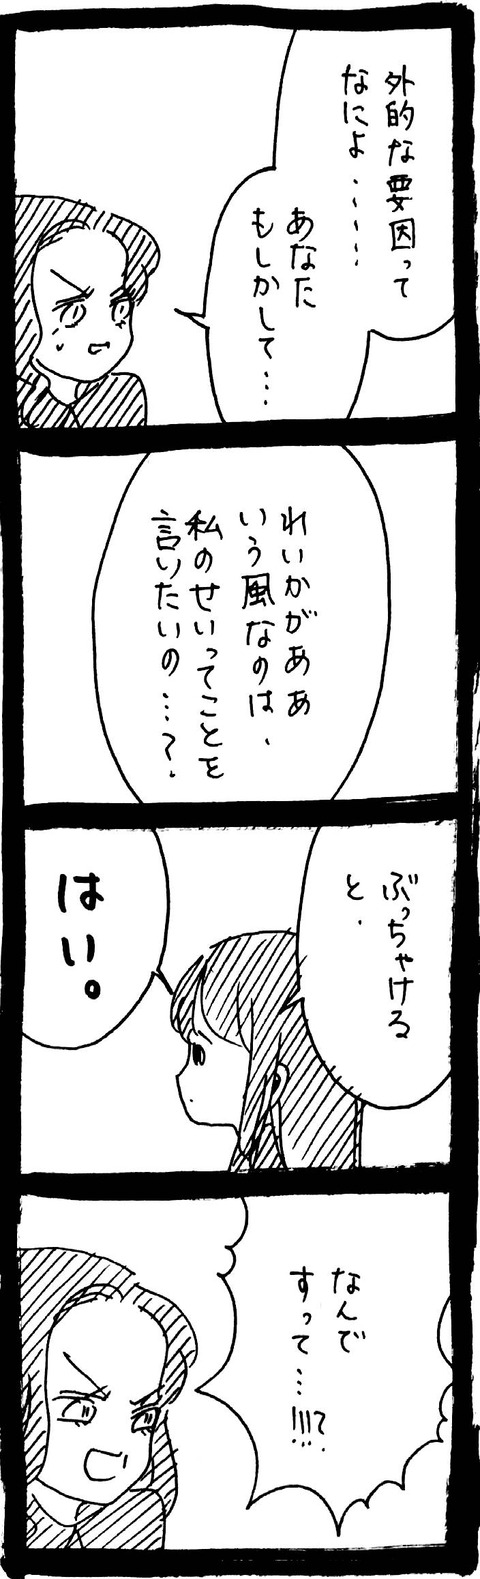 外的な要因って
なによ・・・・・
あなた
もしかして・・・
れいかがああ
いう風なのは、
私のせいってことを
言いたいの・・・?
ぶっちゃける
と、
はい。
なんで
すって・・・!!!?